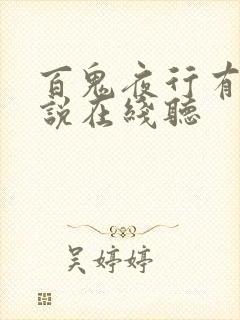 百鬼夜行有
說在綫聽
吴婷婷